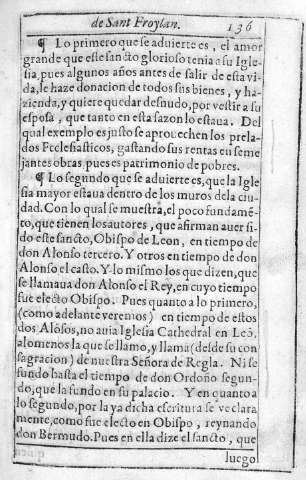 de Sant Froylan. 136
¶ Lo primero que se aduierte es, el amor
grande que este sancto glorioso tenia a su Igle
sia, pues algunos años antes de salir de esta vi
da, le haze donacion de todos sus bienes, y ha
zienda, y quiere quedar desnudo, por vestir a su
esposa, que tanto en esta sazon lo estaua. Del
qual exemplo es justo se aprouechen los prela
dos Ecclesiasticos, gastando sus rentas en seme
jantes obras, pues es patrimonio de pobres.
¶ Lo segundo que se aduierte es, que la Igle
sia mayor estaua dentro de los muros dela ciu
dad. Con lo qual se muestra, el poco fundamē
to, que tienen los autores, que afirman auer si
do este sancto, Obispo de Leon, en tiempo de
don Alonso tercero. Y otros en tiempo de don
Alonso el casto. Y lo mismo los que dizen, que
se llamaua don Alonso el Rey, en cuyo tiempo
fue electo Obispo. Pues quanto a lo primero,
(como adelante veremos) en tiempo de estos
dos Alōsos, no auia Iglesia Cathedral en Leō,
alomenos la que se llamo, y llama (desde su con
sagracion) de nuestra Señora de Regla. Ni se
fundo hasta el tiempo de don Ordoño segun-
do, que la fundo en su palacio. Y en quanto a
lo segundo, por la ya dicha escritura se ve clara
mente, como fue electo en Obispo, reynando
don Bermudo. Pues en ella dize el sancto, que
luego